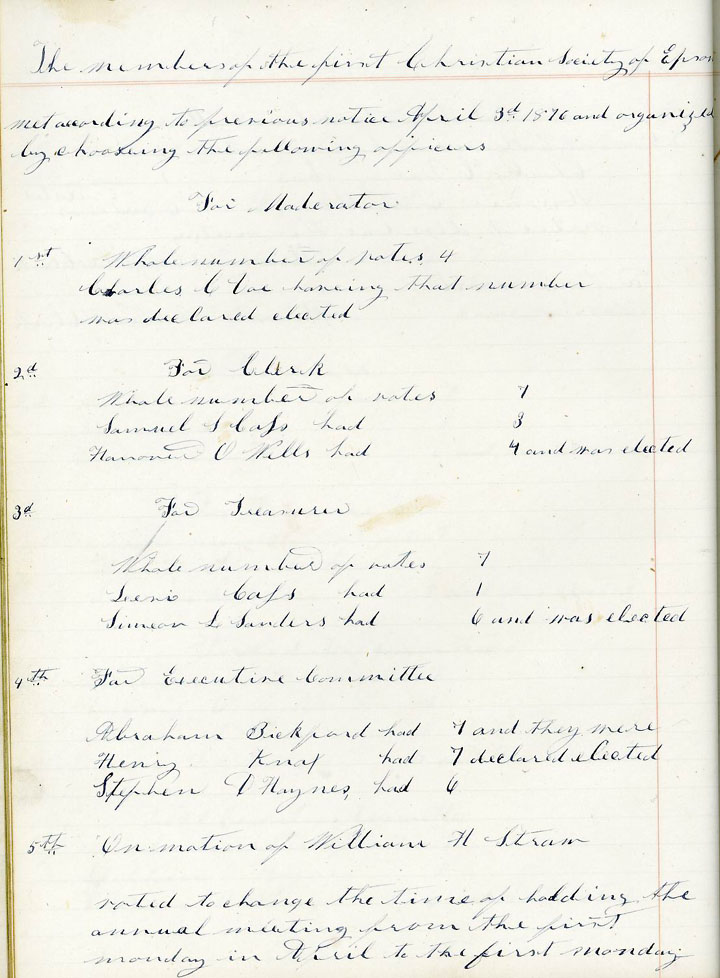 The members of the first Christian Society of Epsom
met according to previous notice April 3d 1876 and organized
by choosing the following officers
For Moderator
1st Whole number of votes 4
Charles C Doe having that number
was declared elected
2d For Clerk
Whole number of votes 7
Samuel S Cass had 3
Hanover O Wells had 4 and was elected
3d For Treasurer
Whole number of votes 7
Levi Cass had 1
Simeon L Sanders had 6 and was elected
4th For Executive Committee
Abraham Bickford had 7 and they were
Henry Knox had 7 declared elected
Stephen D Haynes, had 6
5th On motion of William H Straw
voted to change the time of holding the
annual meeting from the first
monday in April to the first monday